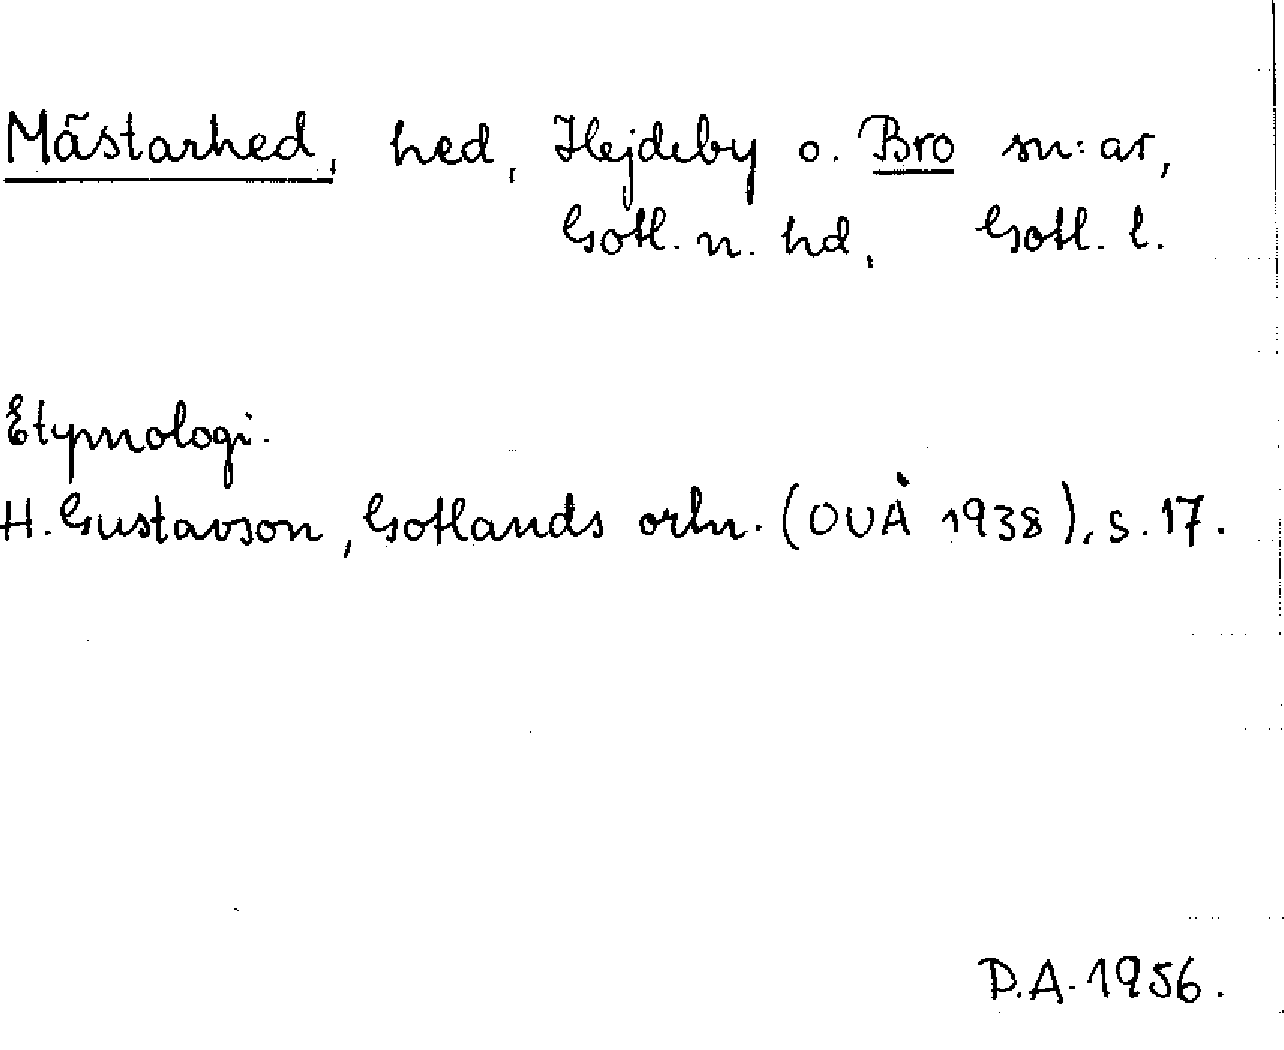 Mästarhed, hed, Hejdeby o. Bro sn:ar,
Gotl. n. hd, Gotl. l.
Etymologi.
H. Gustavson, Gotlands ortn. (OUÅ 1938), s. 17.
P.A. 1956.